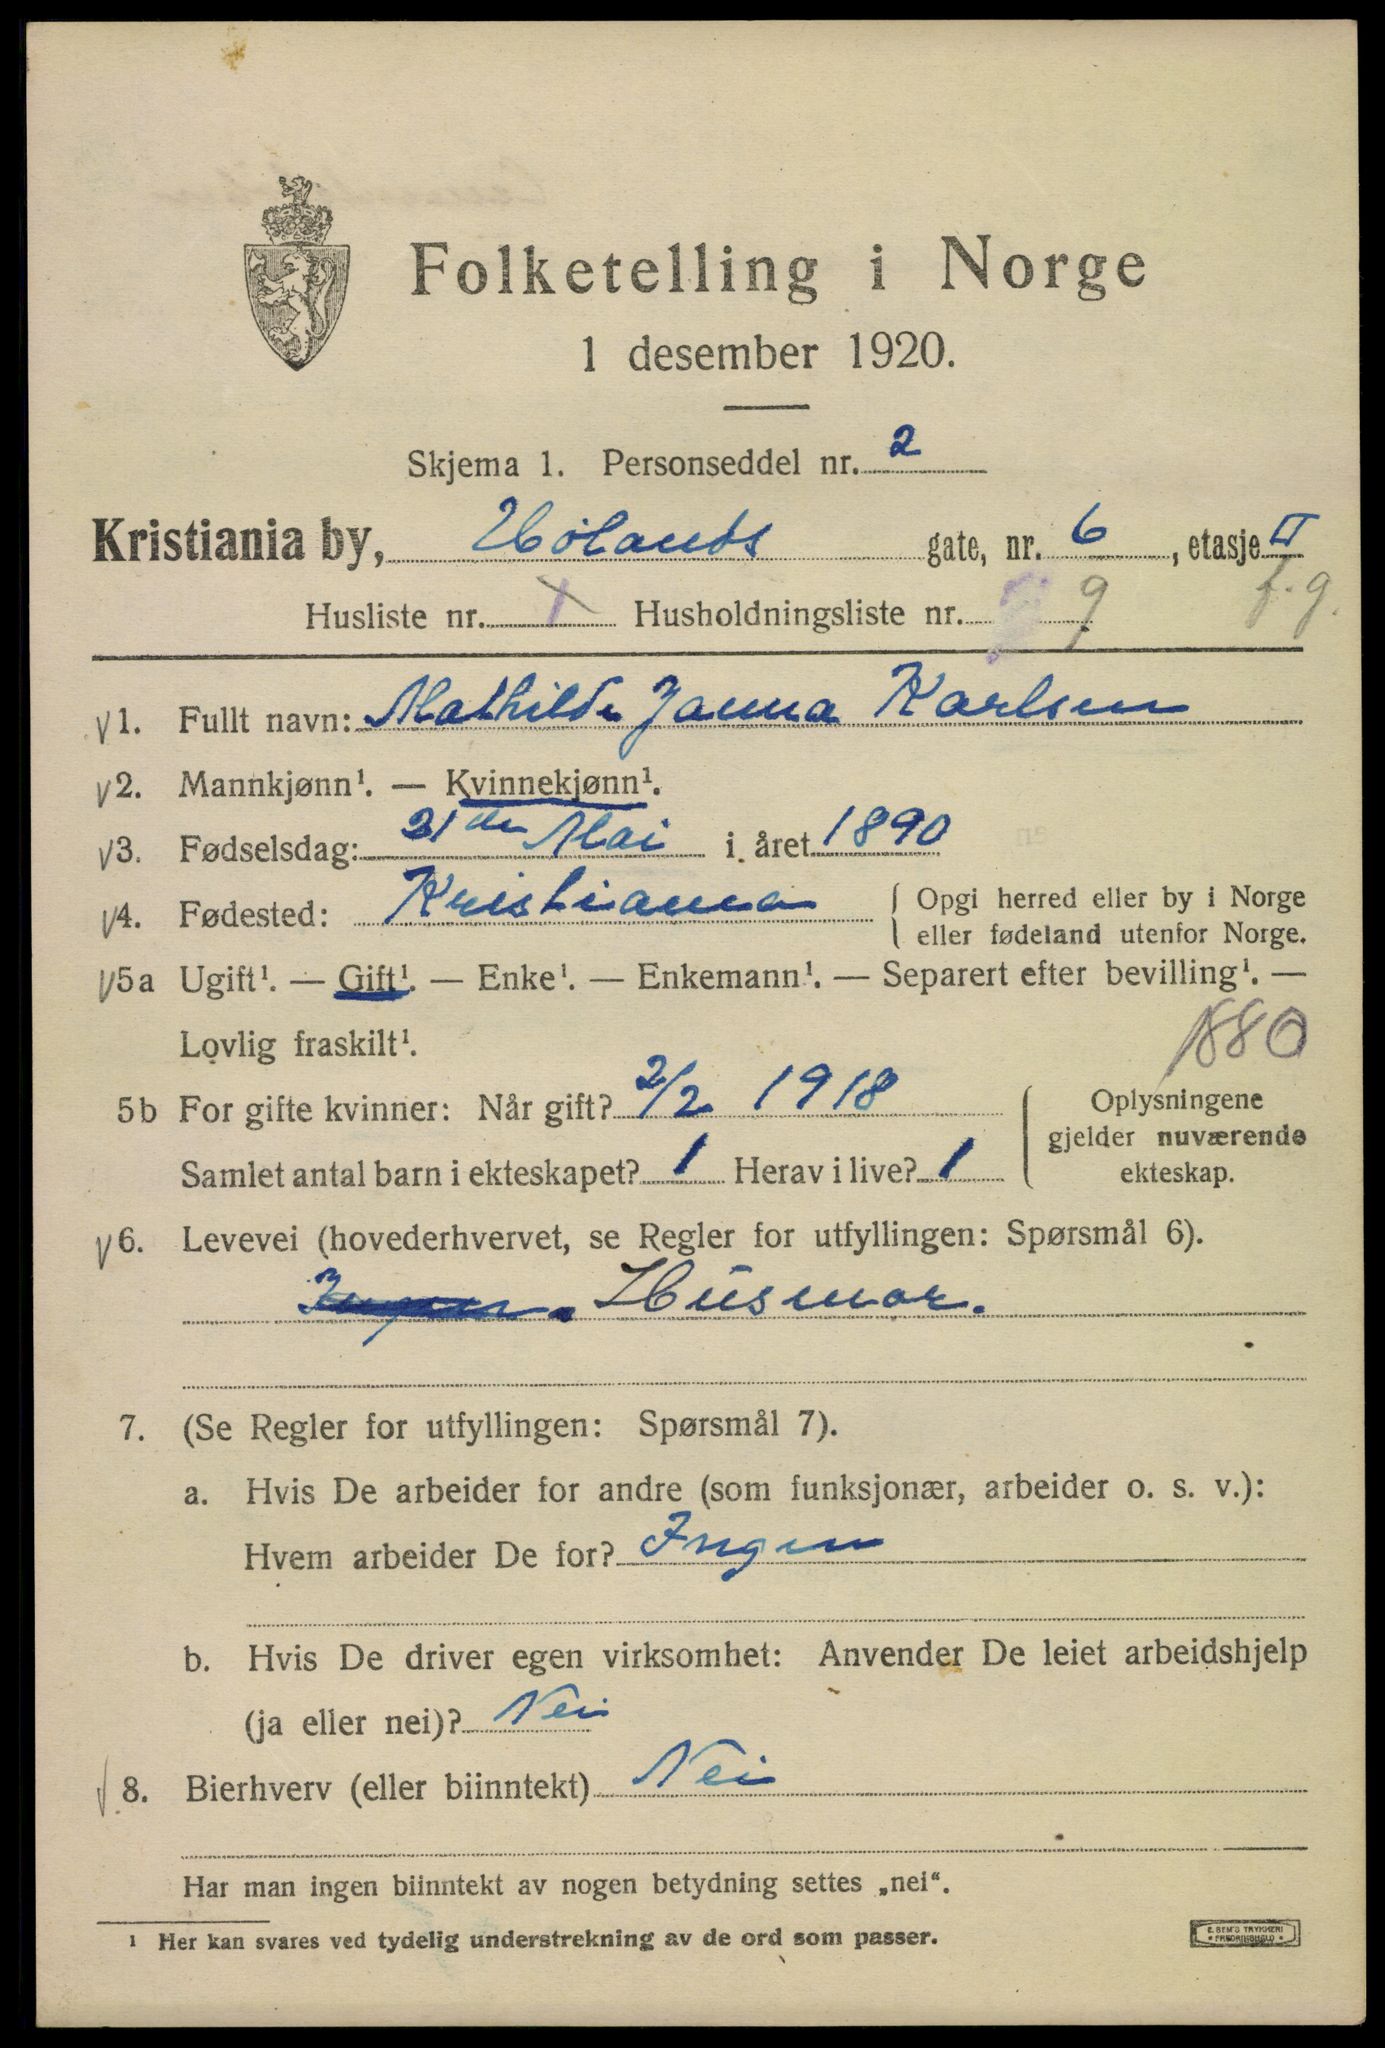 Folketelling i Norge
1 desember 1920.
Skjema 1. Personseddel nr. 2
Kristiania by, Hølands gate, nr. 6, etasje II
Husliste nr. 1 Husholdningsliste nr. 9 f.g.
√1. Fullt navn: Mathilde Janna Karlsen
√2. Mannkjønn¹. — Kvinnekjønn¹.
√3. Fødselsdag: 21de Mai i året 1890
√4. Fødested: Kristiania { Opgi herred eller by i Norge
eller fødeland utenfor Norge.
√5a Ugift¹. — Gift¹. — Enke¹. — Enkemann¹. — Separert efter bevilling¹. —
Lovlig fraskilt¹. 1880
5b For gifte kvinner: Når gift? 2/2 1918 { Oplysningene
gjelder nuværende
Samlet antal barn i ekteskapet? 1 Herav i live? 1 ekteskap.
√6. Levevei (hovederhvervet, se Regler for utfyllingen: Spørsmål 6).
Husmor.
7. (Se Regler for utfyllingen: Spørsmål 7).
a. Hvis De arbeider for andre (som funksjonær, arbeider o. s. v.):
Hvem arbeider De for? Ingen
b. Hvis De driver egen virksomhet: Anvender De leiet arbeidshjelp
(ja eller nei)? Nei
√8. Bierhverv (eller biinntekt) Nei
Har man ingen biinntekt av nogen betydning settes „nei“.
¹ Her kan svares ved tydelig understrekning av de ord som passer.
E. SEM'S TRYKKERI
* FREDRIKSHALD *